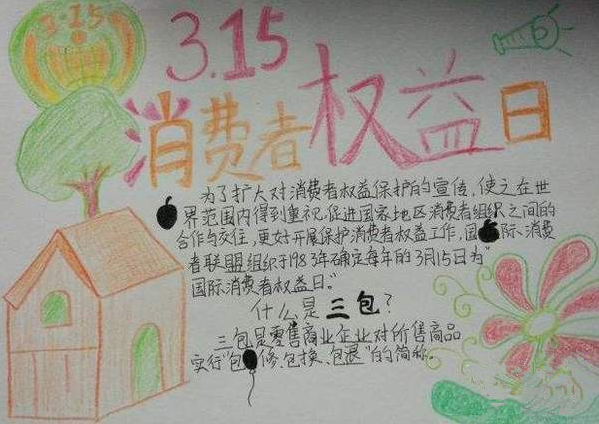 3·15
3.15
消费者权益日
为了扩大对消费者权益保护的宣传，使之在世
界范围内得到重视，促进国家地区消费者组织之间的
合作与交往，更好开展保护消费者权益工作，国际消费
者联盟组织于1983年确定每年的3月15日为“
国际消费者权益日。”
什么是三包？
三包是零售商业企业对所售商品
实行“包修、包换、包退”的简称。